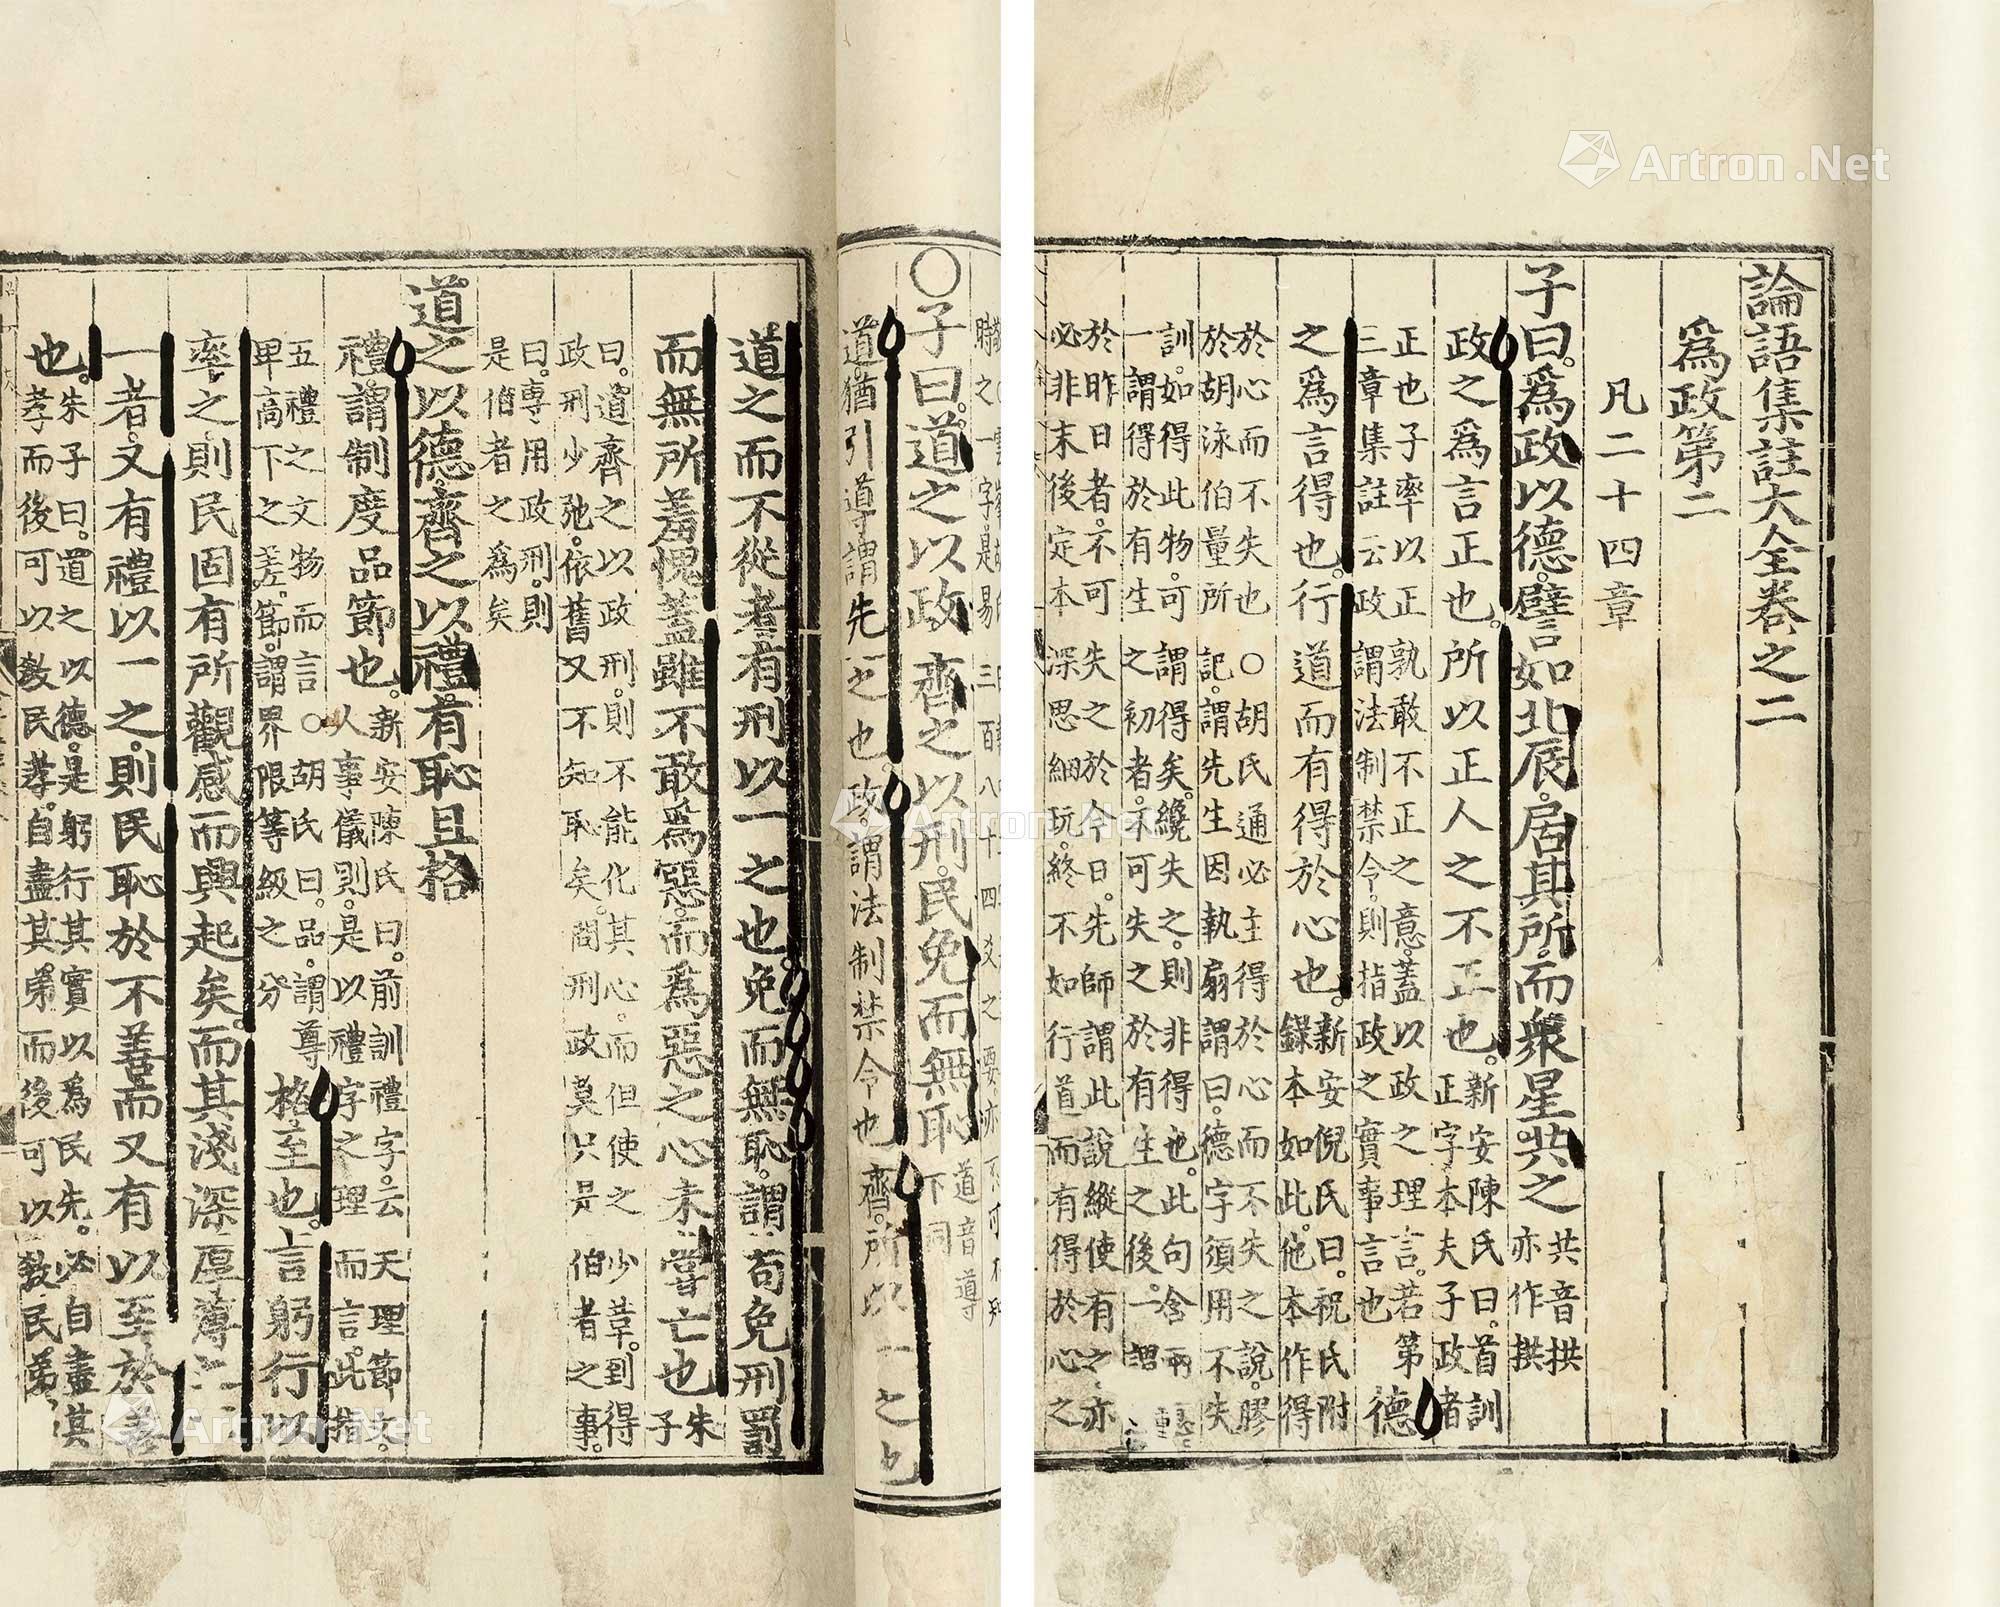 論語集註大全卷之二
為政第二
凡二十四章
子曰。為政以德。譬如北辰。居其所。而衆星共之共音拱
亦作拱
政之為言正也。所以正人之不正也。新安陳氏曰。首訓
正字本夫子政者
正也子率以正孰敢不正之意。蓋以政之理言。若第
三章集註云政謂法制禁令。則指政之實事言也
德
之為言得也。行道而有得於心也。新安倪氏曰。祝氏附
錄本如此。他本作得
於心而不失也○胡氏通必主得於心而不失之說。膠
於胡泳伯量所記。謂先生因執扇謂曰。德字須用不失
訓。如得此物。可謂得矣。纔失之。則非得也。此句含兩
一謂得於有生之初者。不可失之於有生之後。一謂
於昨日者。不可失之於今日。先師謂此說縱使有之。亦
必非末後定本深思細玩。終不如行道而有得於心之
○子曰。道之以政。齊之以刑。民免而無恥道音導
下同
道。猶引導謂先之也。政。謂法制禁令也齊。所以一之也
道之而不從者。有刑以一之也。免而無恥。謂苟免刑罰
而無所羞愧蓋雖不敢為惡。而為惡之心未嘗亡也朱
子
曰。道齊之以政刑。則不能化其心。而但使之少革。到得
政刑少弛。依舊又不知恥矣。問刑政莫只是伯者之事。
曰。專用政刑。則
是伯者之為矣
道之以德。齊之以禮。有恥且格
禮謂制度品節也。新安陳氏曰。前訓禮字。云天理節文。
人事儀則。是以禮字之理而言。此指
五禮之文物而言○胡氏曰。品。謂尊
卑高下之差。節。謂界限等級之分
格。至也。言躬行以
率之則民固有所觀感而興起矣。而其淺深厚薄之
一者。又有禮以一之。則民恥於不善。而又有以至於善
也。朱子曰。道之以德。是躬行其實以為民先。必自盡其
孝而後可以教民孝。自盡其弟。而後可以教民弟。
Artron.Net
Artron.Net
Artron.Net